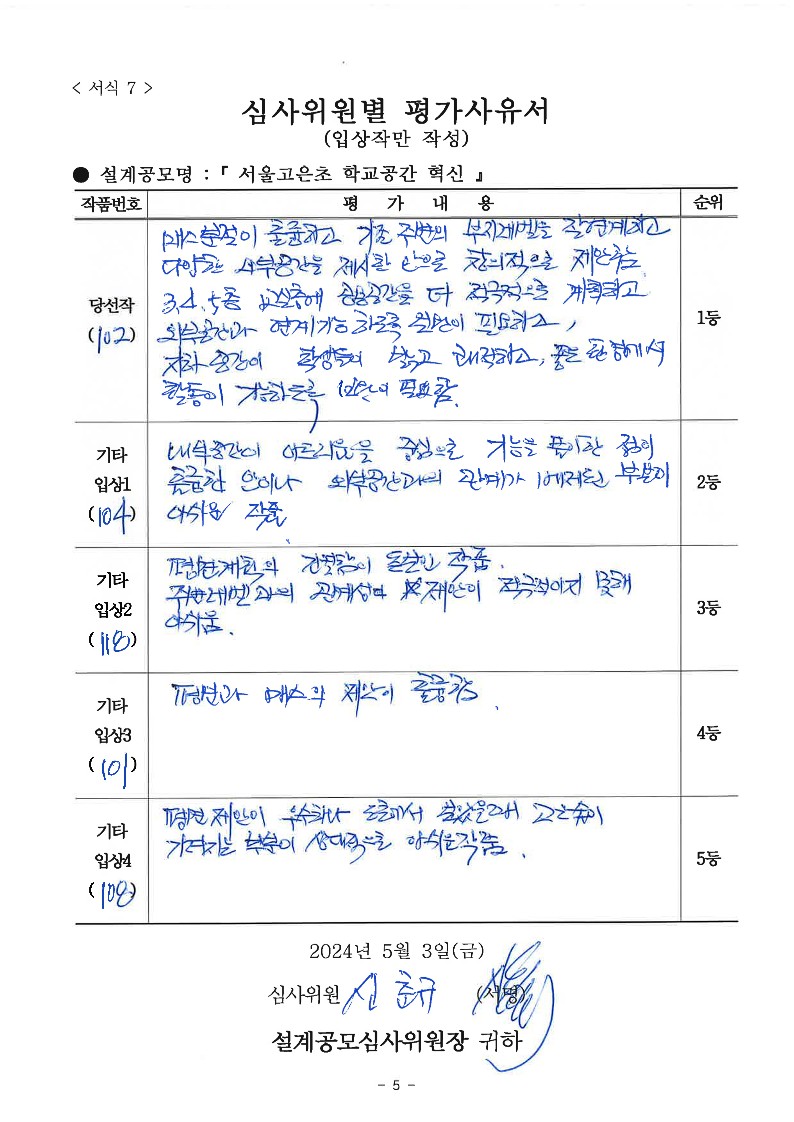 < 서식 7 >
심사위원별 평가사유서
(입상작만 작성)
● 설계공모명 : 『 서울고은초 학교공간 혁신 』
작품번호 평 가 내 용 순위
당선작
(102)
매스분절이 출중하고 기존 주변의 부지레벨을 잘연계하고
다양한 외부공간을 제시한 안으로 창의적으로 제안했음
3,4,5층 교실층에 공용공간을 더 적극적으로 계획하고
외부공간과 연계가능 하도록 보완이 필요하고,
지하공간이 학생들이 밝고 쾌적하고, 좋은 환경에서
활동이 가능하도록 보완이 필요함.
1등
기타
입상1
(104)
내부공간이 아트리움을 중심으로 기능을 풀이한 점이
출중한 안이나 외부공간과의 관계가 배제된 부분이
아쉬운 작품
2등
기타
입상2
(118)
평면계획의 간결함이 돋보인 작품.
주변레벨과의 관계성의 제안이 적극적이지 못해
아쉬움.
3등
기타
입상3
(101)
평면과 매스의 제안이 출중함.
4등
기타
입상4
(108)
평면제안이 우수하나 도로에서 고은숲이
가려지는 부분이 상대적으로 아쉬운작품.
5등
2024년 5월 3일(금)
심사위원 신춘규 (서명)
설계공모심사위원장 귀하
- 5 -